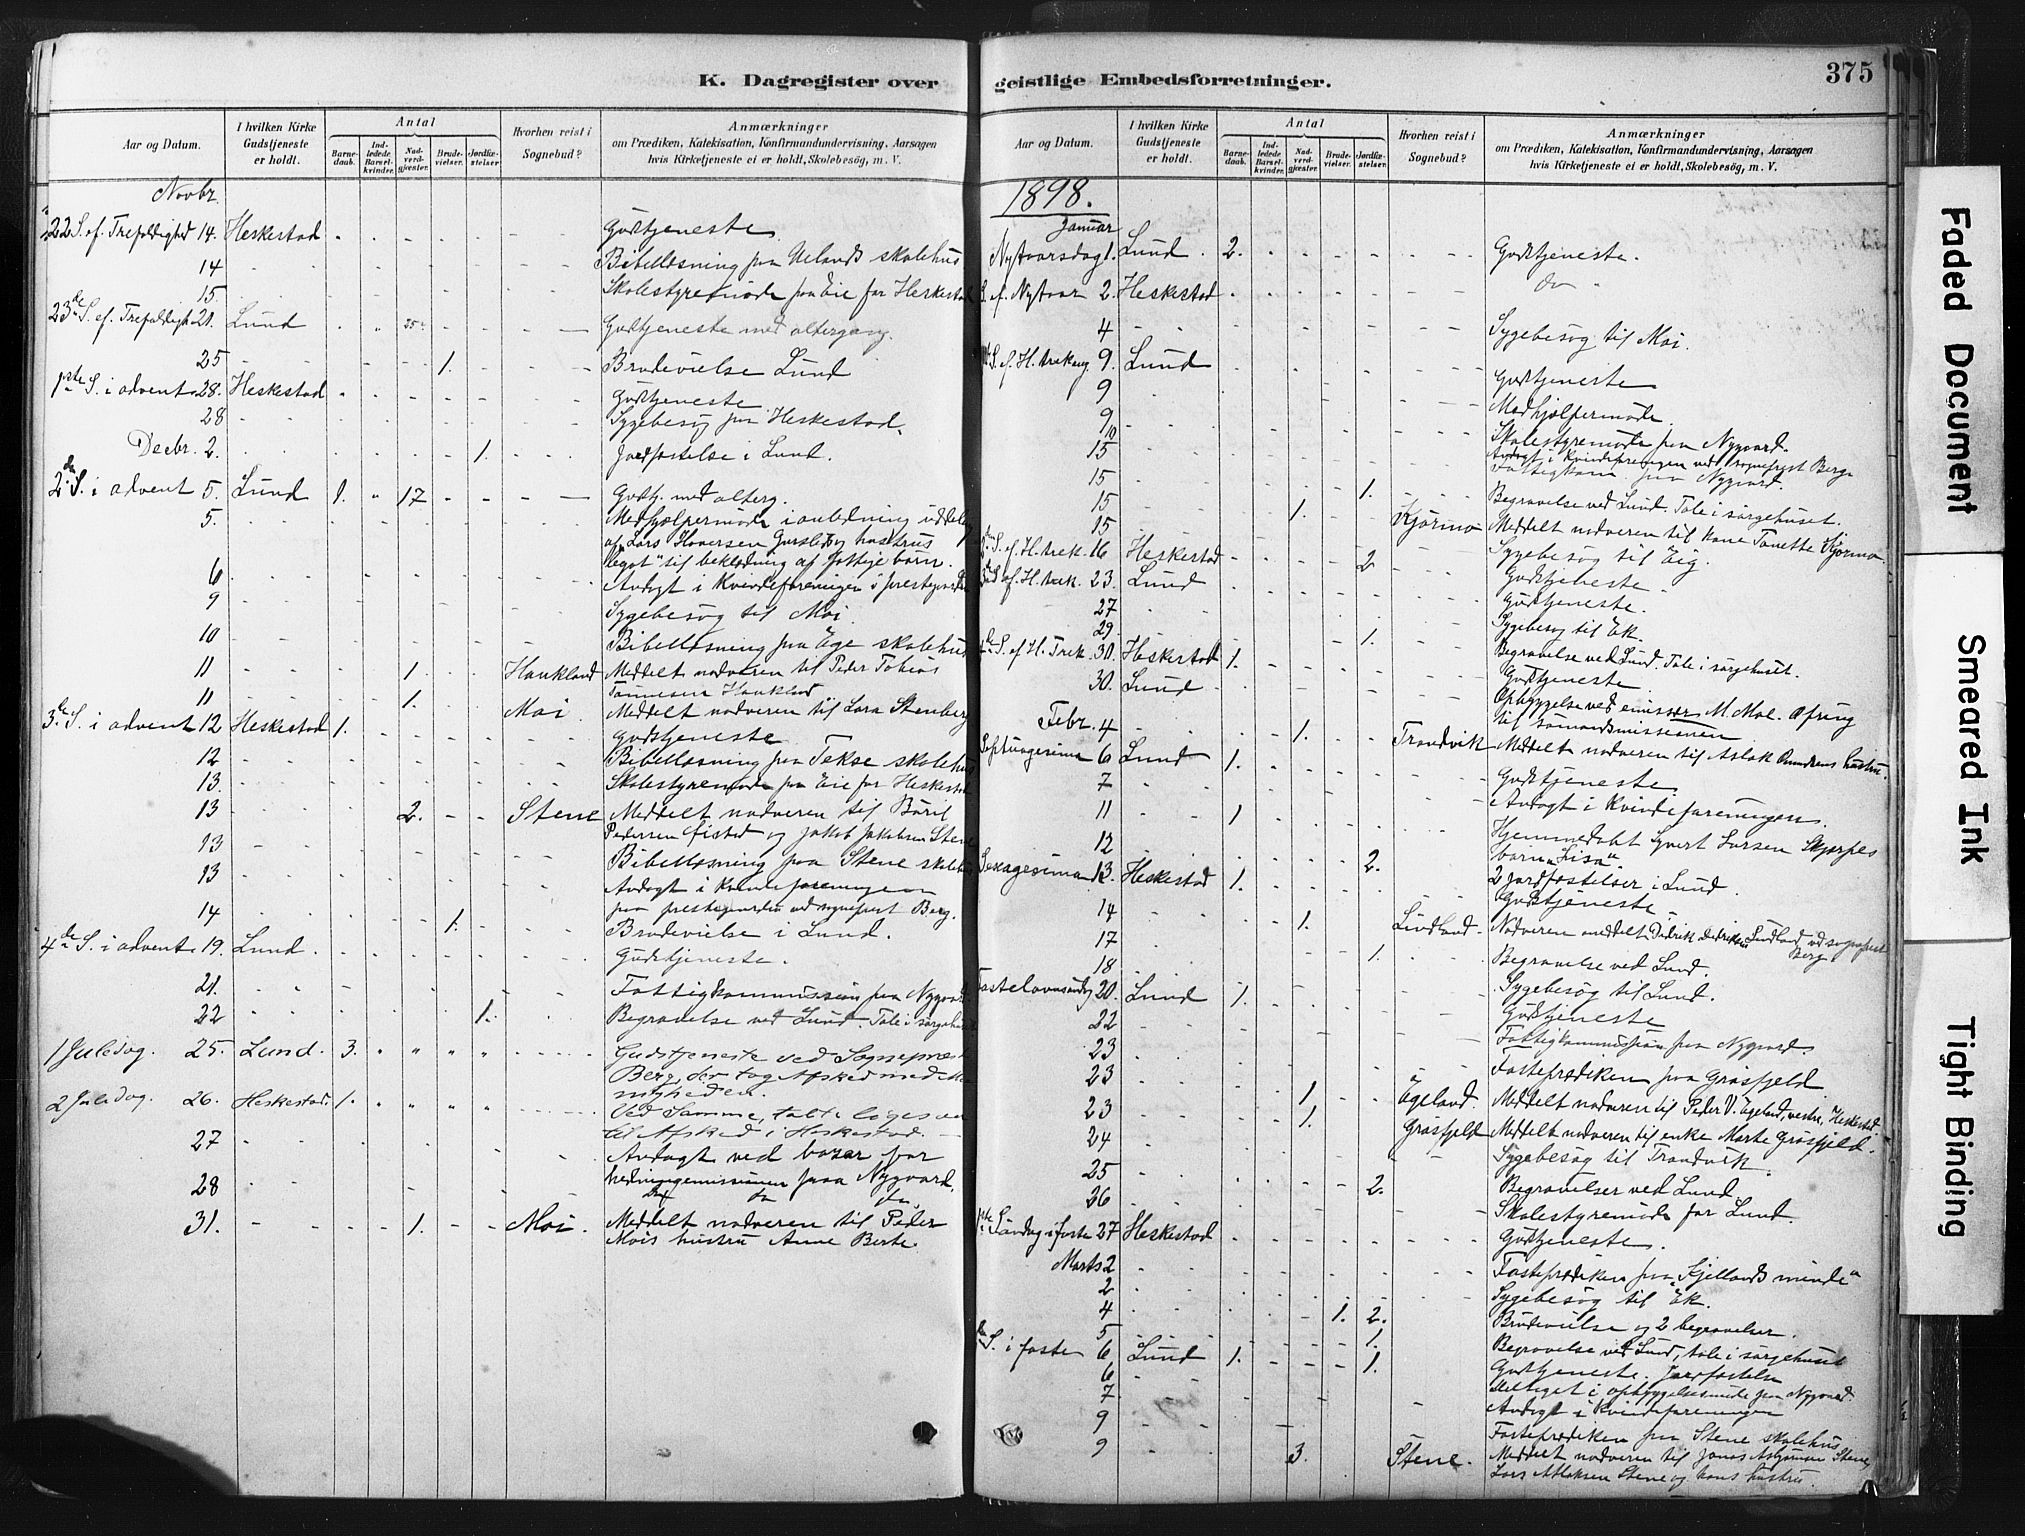 K. Dagregister over
Aar og Datum.
I hvilken Kirke Gudstjeneste er holdt.
Antal
Barnedaab.
Indledede Barselkvinder.
Nadverdgjester.
Brudevielser.
Jordfæstelser.
Hvorhen reist i Sognebud?
Anmærkninger
om Prædiken, Katekisation, Konfirmandundervisning, Aarsagen
hvis Kirketjeneste ei er holdt, Skolebesøg, m. V.
Novbr
22 S. ef. Trefoldighed 14. Heskestad Gudstjeneste
14 Bibellæsning paa Uelands skolehus
15. Skolestyremøde paa Eie for Heskestad
23de S. ef. Trefoldigh 21. Lund Gudstjeneste med altergang.
25 1. Brudevielse Lund
1ste S. i advent 28. Heskestad Gudstjeneste
28 Sygebesøg paa Heskestad.
Decbr. 2. 1. Jordfæstelse i Lund.
2den S. i advent 5. Lund 1. 17 Gudstj. med alterg.
5. Medhjælpermøde i anledning uddeling
af "Lars Haaversen og hustrus
legat" til beklædning af fattige børn.
6 Andagt i Kvindeforeningen i prestegaarden
9 Sygebesøg til Moi.
10 Bibellæsning paa Ege skolehus
11 1. Haukland Meddelt nadveren til Peder Tobias
Tønnesen Haukland
11 1. Moi. Meddelt nadveren til Lars Stenberg
3de S. i advent 12 Heskestad 1. Gudstjeneste
12 Bibellæsning paa Tekse skolehus
13. Skolestyremøde paa Eie for Heskestad
13 2. Stene Meddelt nadveren til Børil
Pedersen Eistad og Jakob Jakobsen Stene
13 Bibellæsning paa Stene skolehus
13 Andagt i Kvindeforeningen
paa prestegaarden ved sogneprest Berg.
14 1. Brudevielse i Lund.
4de S. i advent 19. Lund. Gudstjeneste.
21. Fattigkommission paa Nygaard
22 1. Begravelse ved Lund. Tale i sørgehuset
1 Juledag. 25. Lund. 3. Gudstjeneste ved Sogneprest
Berg, der tog Afsked med Me-
nigheden.
2 Juledag. 26. Heskestad. 1. Ved Samme, talte ligesaa
til Afsked i Heskestad.
27 Andagt ved bazar for
hedningemissionen paa Nygaard.
28 do do do
31. 1. Moi. Meddelt nadveren til Peder
Mois hustru Anne Berte.
geistlige Embedsforretninger.
375
Aar og Datum.
I hvilken Kirke Gudstjeneste er holdt.
Antal
Barnedaab.
Indledede Barselkvinder.
Nadverdgjester.
Brudevielser.
Jordfæstelser.
Hvorhen reist i Sognebud?
Anmærkninger
om Prædiken, Katekisation, Konfirmandundervisning, Aarsagen
hvis Kirketjeneste ei er holdt, Skolebesøg, m. V.
1898.
Januar
Nytaarsdag 1. Lund 2. Gudstjeneste.
S. ef. Nytaar 2. Heskestad do
4 Sygebesøg til Moi.
S. ef. H. trekong 9. Lund Gudstjeneste
9 Medhjælpermøde
9 Skolestyremøde paa Nygaard.
10 Andagt i Kvindeforeningen ved sogneprest Berg
15 Fattigkom. paa Nygaard.
15 1. Begravelse ved Lund. Tale i sørgehuset.
15 1. Kjørmo Meddelt nadveren til kone Tonette Kjørmo
15 Sygebesøg til Eig.
S. ef. H. trek. 16 Heskestad 2 Gudstjeneste
3de S. ef. H. trek. 23. Lund Gudstjeneste.
27 Sygebesøg til Ek.
29. 1. Begravelse ved Lund. Tale i sørgehuset.
S. ef H. Trek. 30. Heskestad 1. Gudstjeneste
30. Lund Opbyggelse ved emissær M. Moe. Ofring
til sømandsmissionen
Febr. 4 1. Trandvik Meddelt nadveren til Aslak hustru.
Septuagesima 6 Lund 1. Gudstjeneste
7 Andagt i Kvindeforeningen.
11 1 Hjemmedøbt Syvert Larsen Skjerpes
barn "Lisa"
12 2. 2 jordfæstelser i Lund.
Sexagesima 13. Heskestad 1. Gudstjeneste
14 1. Lindland. Nadveren meddelt Didrik Didriksen Lindland ved sogneprest
Berg
17 1. Begravelse ved Lund.
18 Sygebesøg til Lund.
Fastelavnssøndag 20. Lund 1. Gudstjeneste
22 Fattigkommission paa Nygaard.
23 Fasteprædiken paa Grøsfjeld
23 1 Egeland. Meddelt nadveren til Peder V. Egeland, vestre, Heskestad.
23 1. Grøsfjeld Meddelt nadveren til enke Marte Grøsfjeld.
24 Sygebesøg til Trandvik.
25 2. Begravelser ved Lund
26 Skolestyremøde for Lund.
1ste Søndag i faste 27 Heskestad Gudstjeneste.
Marts 2 Fasteprædiken paa "Kjellands minde"
2 Sygebesøg til Ek.
4 1. 2. Brudevielse og 2 begravelser.
5 1. Begravelse ved Lund, tale i sørgehuset
S. i faste 6 Lund 1. 1. Gudstjeneste. Jordfæstelse
6 Deltaget i opbyggelsesmøde paa Nygaard
7 Andagt i Kvindeforeningen
9 Fasteprædiken paa Stene skolehus
9 3. Stene. Meddelt nadveren til Jonas Stene,
Lars Atlaksen Stene og hans hustru.
Faded Document
Smeared Ink
Tight Binding